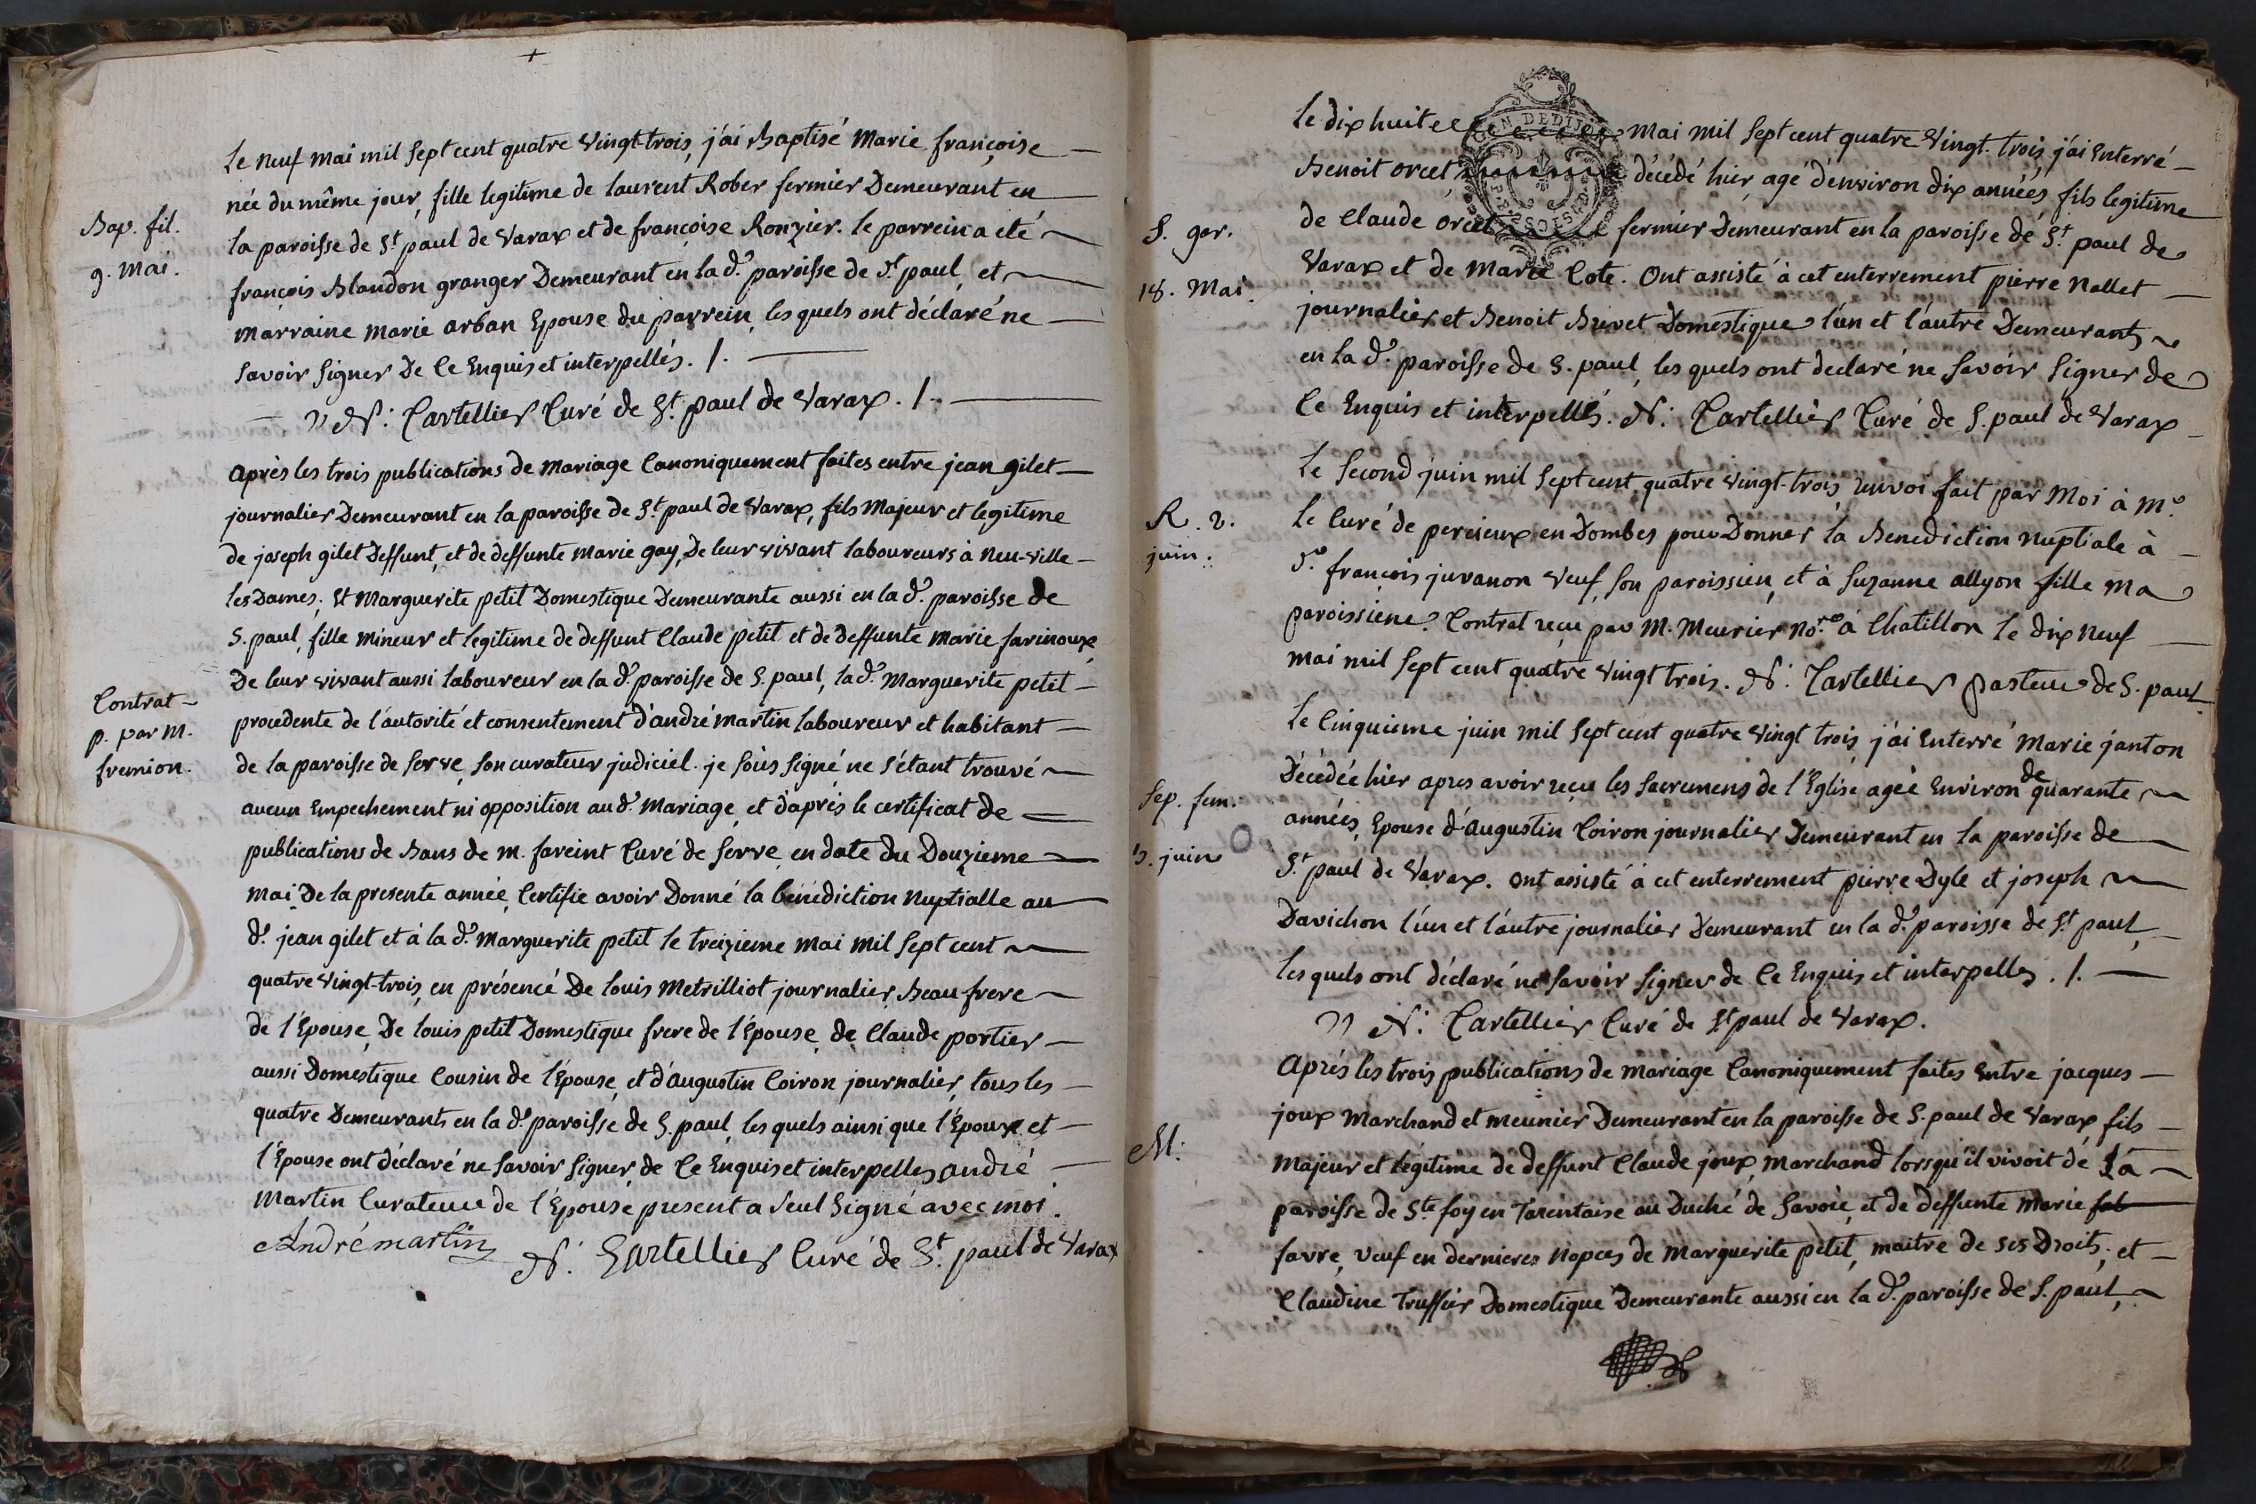 +
Le neuf mai mil sept cent quatre vingt-trois, j'ai Baptisé Marie françoise
née du même jour, fille legitime de laurent Rober fermier Demeurant en
Bap. fil.
la paroisse de St. paul de Varax et de françoise Ronzier. le parrein a eté
9. Mai.
françois Blandon granger Demeurant en la de. paroisse de St. paul, et
marraine marie arban Epouse du parrein, les quels ont déclaré ne
savoir signer De Ce Enquis et interpellés. /.
N: Cartellier Curé de St. paul de Varax. /.
après les trois publications de mariage Canoniquement faites entre jean gilet
journalier Demeurant en la paroisse de St. paul de Varax, fils Majeur et legitime
de joseph gilet Deffunt, et de deffunte marie gay, De leur vivant laboureurs à Neu-ville
les Dames; Et Marguerite petit Domestique Demeurante aussi en la de. paroisse de
S. paul, fille mineur et legitime de deffunt Claude petit et de deffunte marie farinoux,
De leur vivant aussi laboureur en la de. paroisse de S. paul, la de. Marguerite petit
Contrat
p. par M.
fremion.
procedente de l'autorité et consentement d'andré martin laboureur et habitant
de la paroisse de serve, son curateur judiciel. je sous signé ne s'étant trouvé
aucun Empechement ni opposition au d. Mariage, et d'après le certificat de
publications de Bans de m. fareint Curé de serve en date du Douzieme
mai De la presente année, Certifie avoir Donné la bénédiction nuptialle au
de. jean gilet et à la de. Marguerite petit le treizieme mai mil sept cent
quatre vingt-trois, en présence De louis Metrilliot journalier Beau frere
de l'Epouse, De louis petit Domestique frere de l'Epouse, de Claude portier
aussi Domestique Cousin de l'Epouse, et d'augustin Coiron journalier, tous les
quatre Demeurants en la de. paroisse de S. paul, les quels ainsi que l'Epoux et
l'Epouse ont déclaré ne savoir signer, de Ce Enquis et interpelles, andré
Martin Curateur de l'Epouse present a seul signé avec moi.
André martin N: Cartellier Curé de St. paul de Varax
Le dix huit mai mil sept cent quatre vingt-trois, j'ai Enterré
Benoit orcet décédé hier agé d'environ dix années, fils legitime
S. gar.
de Claude orcet fermier Demeurant en la paroisse de St. paul de
18. Mai.
Varax et de Marie Cote. Ont assisté à cet enterrement pierre Nallet
journalier et Benoit Buvet Domestique l'un et l'autre Demeurants
en la de. paroisse de S. paul, les quels ont declaré ne savoir signer de
Ce Enquis et interpellés. N: Cartellier Curé de S. paul de Varax
Le second juin mil sept cent quatre vingt-trois renvoi fait par Moi à mr.
R. 2.
juin.
Le Curé de percieux en Dombes pour Donner la Benediction nuptiale à
Sr. françois juvanon veuf, son paroissien, et à suzanne allyon fille ma
paroissiene. Contrat reçu par M. Meurier Nore. à Chatillon le dix neuf
mai mil sept cent quatre vingt trois. N: Cartellier pasteur de S. paul.
Le Cinquieme juin mil sept cent quatre vingt trois, j'ai Enterré Marie janton
Décédée hier apres avoir reçu les sacremens de l'Eglise, ageé Environ de quarante
Sep. fem.
5. juin
années, Epouse d'augustin Coiron journalier Demeurant en la paroisse de
St. paul de Varax. ont assisté à cet enterrement pierre Dyle et joseph
Davichon l'un et l'autre journalier Demeurant en la de. paroisse de St. paul,
les quels ont déclaré ne savoir signer de Ce Enquis et interpelles. /.
N: Cartellier Curé de St paul de Varax.
Après les trois publications de mariage Canoniquement faites Entre jacques
joux Marchand et meunier Demeurant en la paroisse de S. paul de Varax, fils
M:
majeur et legitime de deffunt Claude joux, marchand lorsqu'il vivoit de la
paroisse de Ste foy en Tarentaise au Duché de Savoie, et de deffunte Marie fab
favre, veuf en dernieres nopces de marguerite petit, maitre de ses Droits; et
Claudine Truffier Domestique Demeurante aussi en la de. paroisse de S. paul,